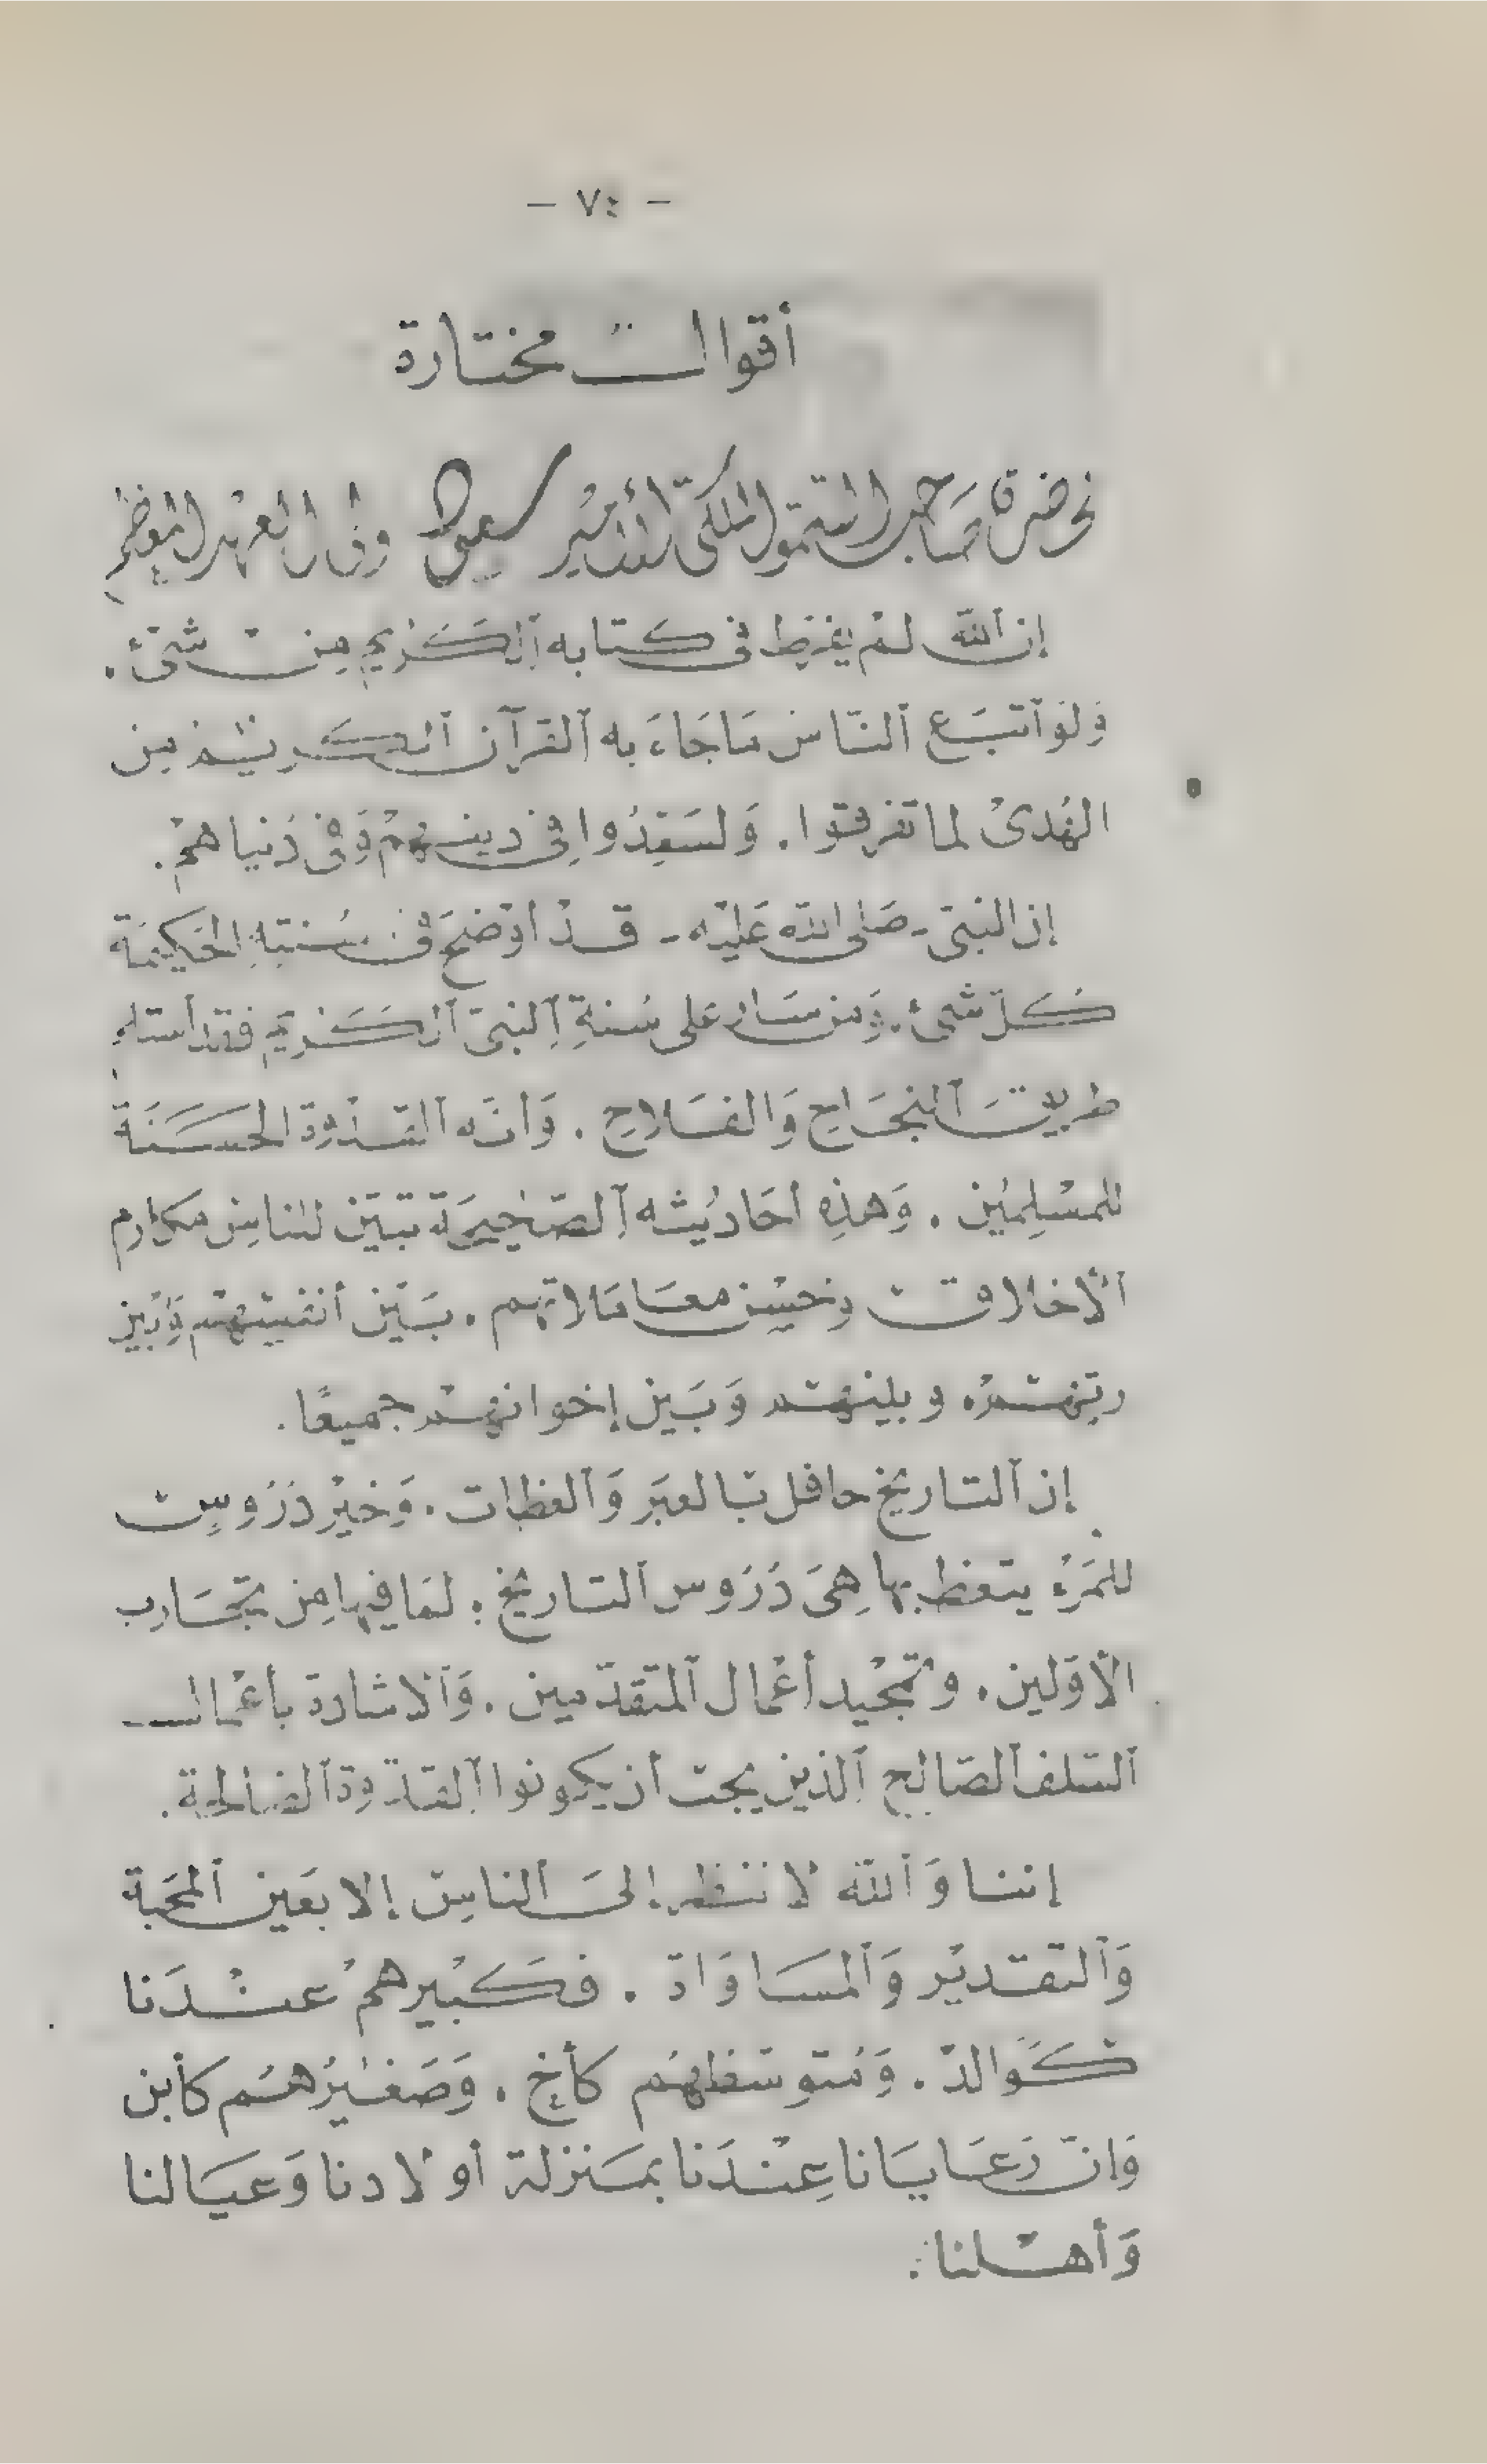 - ٧٤ -
أقوال مختارة
لحضرة صاحب السّمو الملكي الأمير سعود ولي العهد المعظم
إن ٱلله لم يفرّط في كتابه ٱلكَريم من شيء.
وَلو ٱتبَع ٱلنّاس مَا جَاءَ به ٱلقرآن ٱلكَريم من
الهُدىٰ لما تفرقوا. وَلسَعِدُوا في دينهمْ وَفي دُنياهمْ.
إن النبيّ - صَلى الله عَليْه - قدْ أوْضحَ في سُنتهِ الحَكيمَة
كُلّ شيء. وَمن سَار على سُنةِ ٱلنبيّ ٱلكَريم فقد
طريقَ ٱلنجَاح وَالفَلاح. وَأنّه ٱلقدْوة الحسَنَة
للمسْلِمِين. وَهذِه أحَاديثه ٱلصّحيحَة تبيّن للناسِ مكارم
ٱلأخلاق وحسْن معَامَلاتهم. بَيْن أنفسهم وَبَين
ربّهمْ. وبينهم وَبَين إخوانهم جميعًا.
إن ٱلتاريخ حافل بالعبَر وَٱلعظات. وَخيْر دُرُوسٍ
للمَرْء يتعظ بها هِيَ دُرُوس ٱلتاريخ. لمَا فيها مِن تجَارب
الأوّلين. وتمجْيد أعْمال ٱلمتقدّمين. وَٱلاشادة بأعْمال
ٱلسّلف ٱلصّالح ٱلذين يجب أن يكونوا ٱلقدْوة ٱلصَالحة.
إننا وَٱلله لا ننظر إلىَ ٱلناسِ إلا بعَين ٱلمحَبة
وَٱلتقديْر وَٱلمسَاوَاة. فكَبْيرهمْ عنْدَنا
كَوالد. وَمتوسّطهُم كأخ. وَصَغيْرُهم كأبن
وَإنّ رَعَايَانا عِنْدَنا بمَنزلة أولادنا وَعيَالنا
وَأهْلنا.